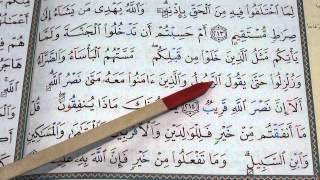 لِمَا ٱخْتَلَفُوا۟ فِيهِ مِنَ ٱلْحَقِّ بِإِذْنِهِۦ وَٱللَّهُ يَهْدِى مَن يَشَآءُ إِلَىٰ
صِرَٰطٍ مُّسْتَقِيمٍ ٢١٣ أَمْ حَسِبْتُمْ أَن تَدْخُلُوا۟ ٱلْجَنَّةَ وَلَمَّا
يَأْتِكُم مَّثَلُ ٱلَّذِينَ خَلَوْا۟ مِن قَبْلِكُم مَّسَّتْهُمُ ٱلْبَأْسَآءُ وَٱلضَّرَّآءُ
وَزُلْزِلُوا۟ حَتَّىٰ يَقُولَ ٱلرَّسُولُ وَٱلَّذِينَ ءَامَنُوا۟ مَعَهُۥ مَتَىٰ نَصْرُ ٱللَّهِ
أَلَآ إِنَّ نَصْرَ ٱللَّهِ قَرِيبٌ ٢١٤ مَاذَا يُنفِقُونَ
مَآ أَنفَقْتُم مِّنْ خَيْرٍ فَلِلْوَٰلِدَيْنِ وَٱلْأَقْرَبِينَ وَٱلْيَتَٰمَىٰ وَٱلْمَسَٰكِينِ
وَٱبْنِ ٱلسَّبِيلِ وَمَا تَفْعَلُوا۟ مِنْ خَيْرٍ فَإِنَّ ٱللَّهَ بِهِۦ عَلِيمٌ